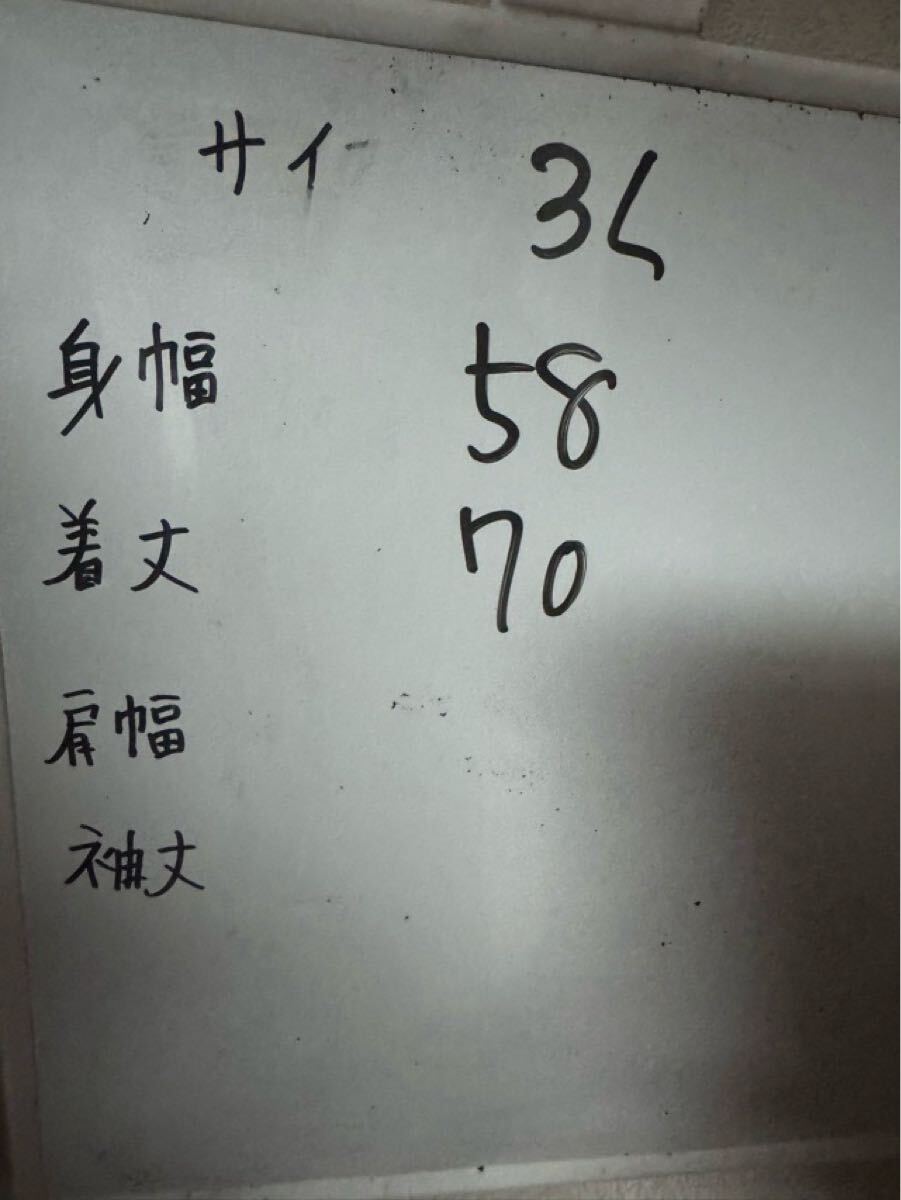 サイ 3L
身幅 58
着丈 70
肩幅
袖丈